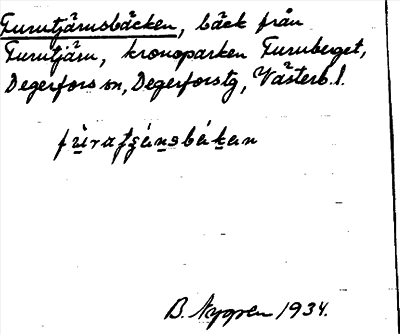 Furutjärnsbäcken, bäck från
Furutjärn, kronoparken Furuberget,
Degerfors sn, Degerforstg, Västerb. l.
B. Nygren 1934.